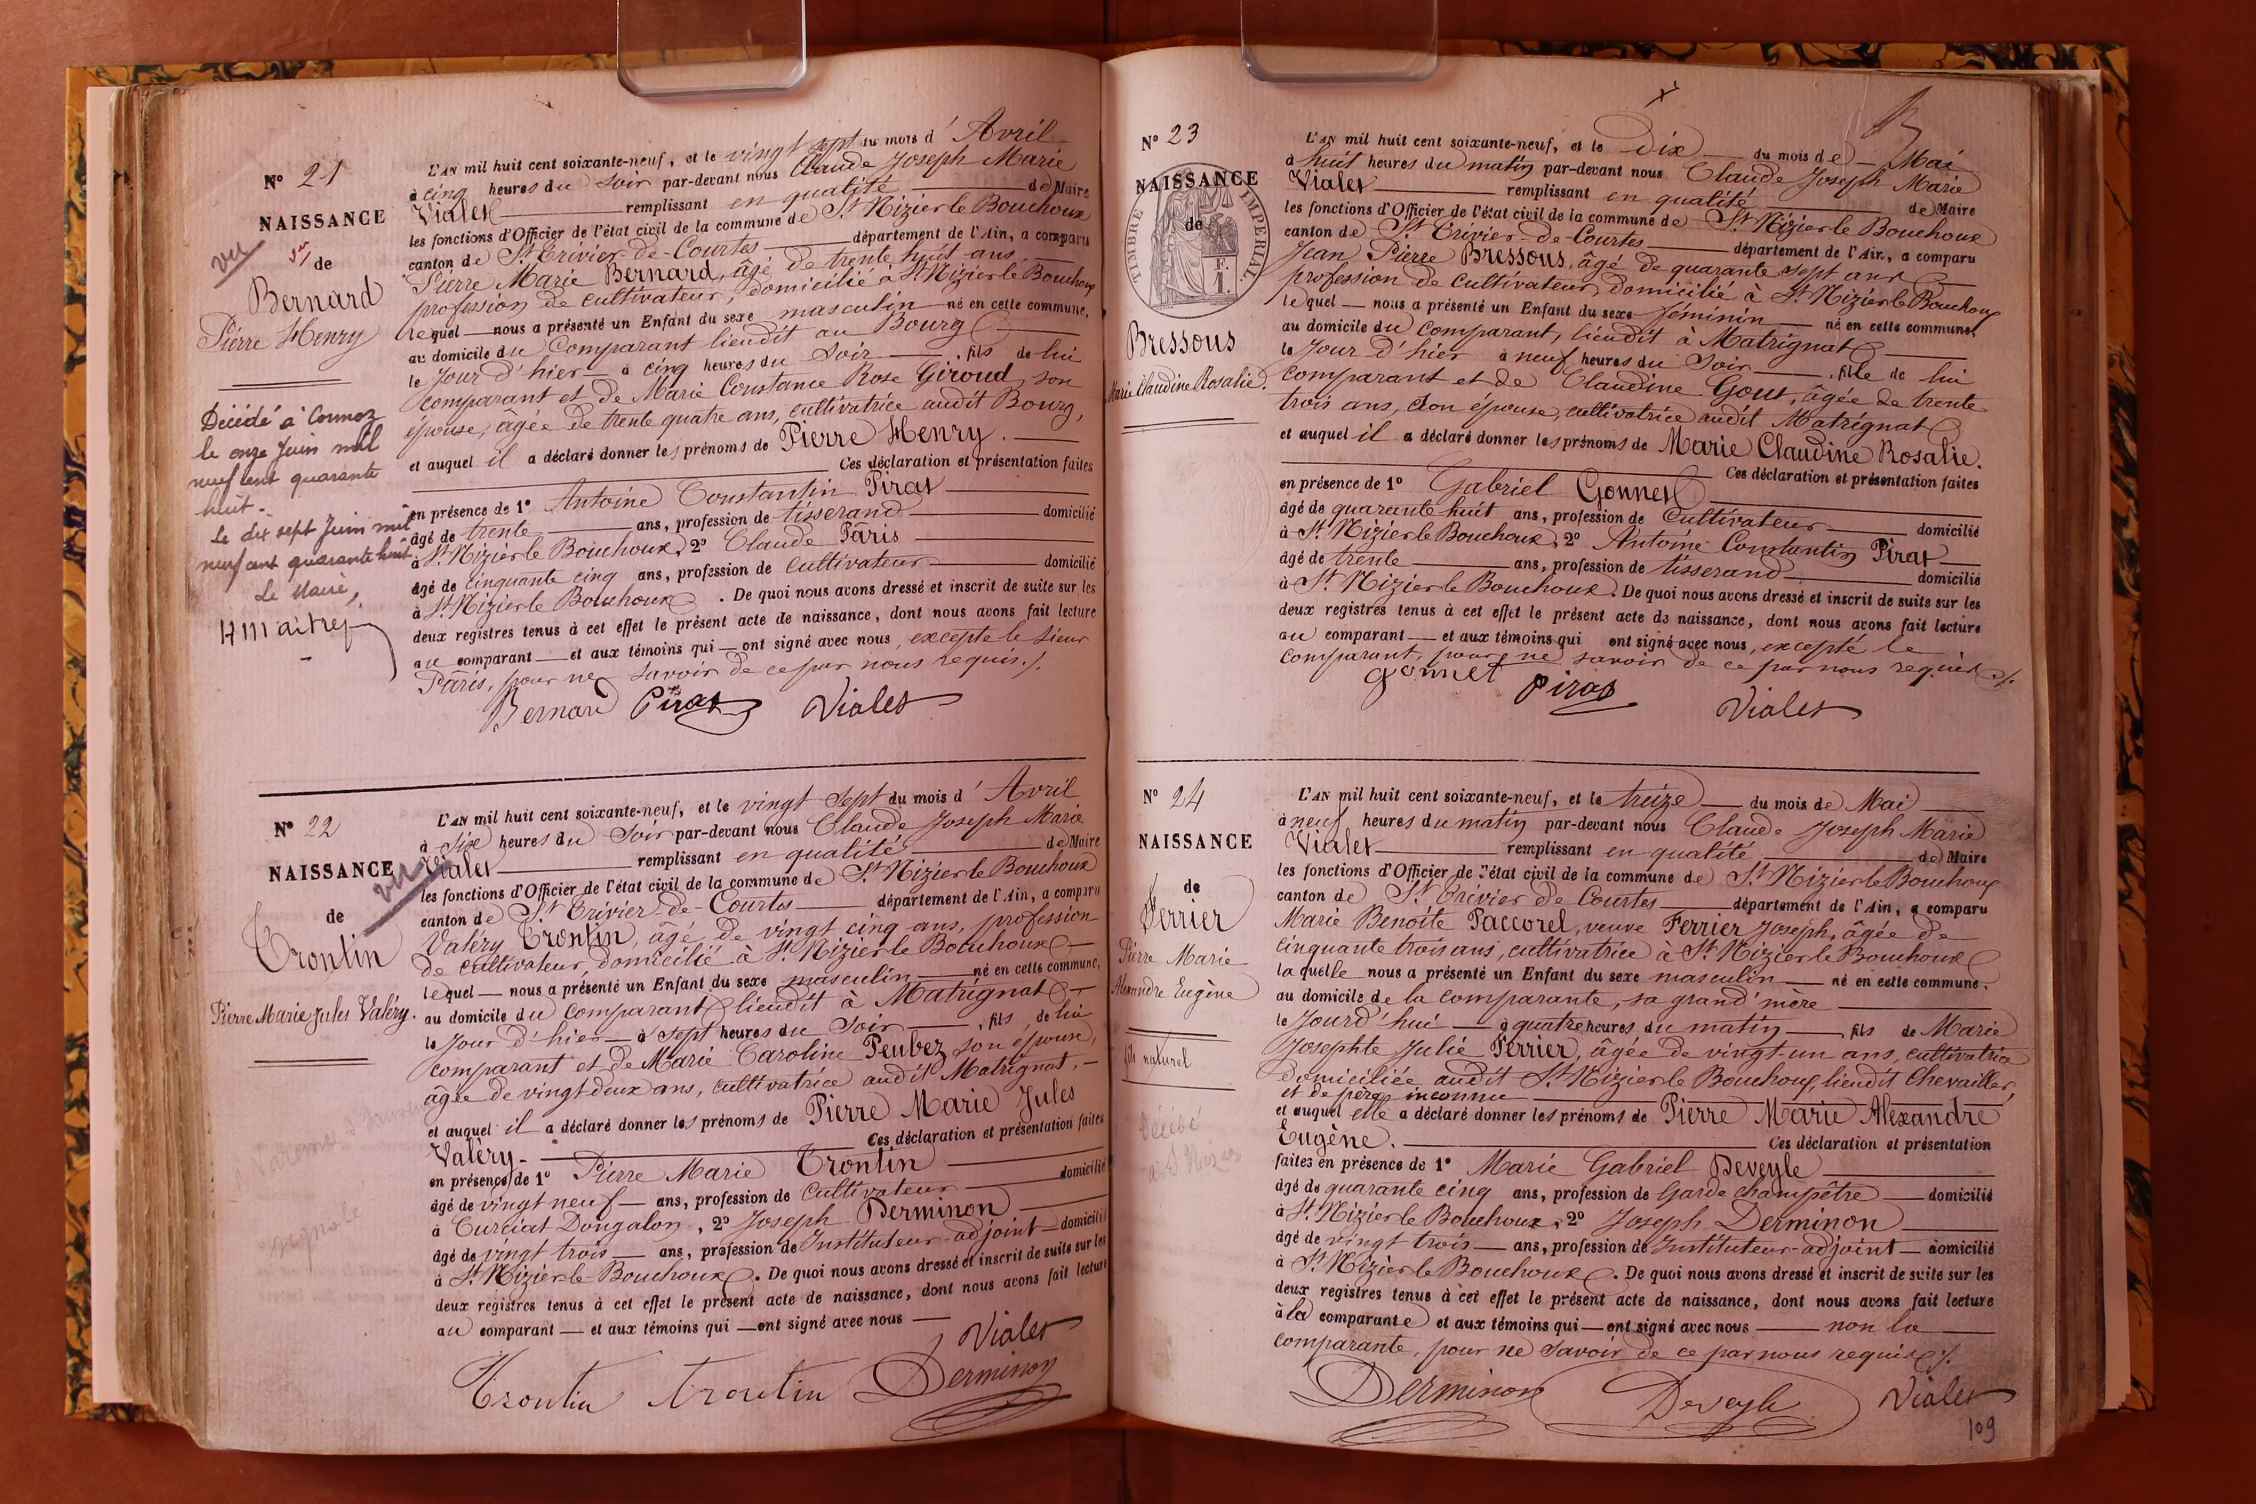 N° 21
NAISSANCE
vu
de
Bernard
Pierre Henry
Décédé à Cormoz
le onze Juin mil
neuf cent quarante
huit.
Le dix sept Juin mil
neuf cent quarante huit.
Le Maire,
L'AN mil huit cent soixante-neuf, et le vingt sept du mois d'Avril
à cinq heures du soir par-devant nous Claude Joseph Marie
Vialet remplissant en qualité de Maire
les fonctions d'Officier de l'état civil de la commune de St Nizier le Bouchoux
canton de St Trivier-de-Courtes département de l'Ain, a comparu
Pierre Marie Bernard, âgé de trente huit ans,
profession de cultivateur, domicilié à St Nizier le Bouchoux
lequel nous a présenté un Enfant du sexe masculin né en cette commune,
au domicile du comparant lieudit au Bourg
le Jour d'hier à cinq heures du soir, fils de lui
comparant et de Marie Constance Rose Giroud, son
épouse, âgée de trente quatre ans, cultivatrice audit Bourg,
et auquel il a déclaré donner les prénoms de Pierre Henry.
Ces déclaration et présentation faites
en présence de 1° Antoine Constantin Pirat
âgé de trente ans, profession de tisserand domicilié
à St Nizier le Bouchoux, 2° Claude Pâris
âgé de cinquante cinq ans, profession de cultivateur domicilié
à St Nizier le Bouchoux. De quoi nous avons dressé et inscrit de suite sur les
deux registres tenus à cet effet le présent acte de naissance, dont nous avons fait lecture
au comparant et aux témoins qui ont signé avec nous, excepté le sieur
Pâris, pour ne savoir de ce par nous requis./.
Bernard Pirat Vialet
N° 22
NAISSANCE
vu
de
Trontin
Pierre Marie Jules Valéry.
L'AN mil huit cent soixante-neuf, et le vingt sept du mois d'Avril
à six heures du soir par-devant nous Claude Joseph Marie
Vialet remplissant en qualité de Maire
les fonctions d'Officier de l'état civil de la commune de St Nizier le Bouchoux
canton de St Trivier-de-Courtes département de l'Ain, a comparu
Valéry Trontin, âgé de vingt cinq ans, profession
de cultivateur, domicilié à St Nizier le Bouchoux
lequel nous a présenté un Enfant du sexe masculin né en cette commune,
au domicile du comparant lieudit à Matrignat
le Jour d'hier à sept heures du soir, fils de lui
comparant et de Marie Caroline Peubez son épouse,
âgée de vingt deux ans, cultivatrice audit Matrignat,
et auquel il a déclaré donner les prénoms de Pierre Marie Jules
Valéry. Ces déclaration et présentation faites
en présence de 1° Pierre Marie Trontin
âgé de vingt neuf ans, profession de cultivateur domicilié
à Curciat Dongalon, 2° Joseph Derminon
âgé de vingt trois ans, profession de Instituteur-adjoint domicilié
à St Nizier le Bouchoux. De quoi nous avons dressé et inscrit de suite sur les
deux registres tenus à cet effet le présent acte de naissance, dont nous avons fait lecture
au comparant et aux témoins qui ont signé avec nous
Vialet
Trontin trontin Derminon
N° 23
NAISSANCE
TIMBRE IMPERIAL
de
1 F.
Bressous
Marie Claudine Rosalie.
L'AN mil huit cent soixante-neuf, et le Dix du mois de Mai
à huit heures du matin par-devant nous Claude Joseph Marie
Vialet remplissant en qualité de Maire
les fonctions d'Officier de l'état civil de la commune de St Nizier le Bouchoux
canton de St Trivier-de-Courtes département de l'Ain, a comparu
Jean Pierre Bressous, âgé de quarante sept ans
profession de cultivateur, domicilié à St Nizier le Bouchoux
lequel nous a présenté un Enfant du sexe féminin né en cette commune,
au domicile du comparant, lieudit à Matrignat
le Jour d'hier à neuf heures du soir, fille de lui
comparant et de Claudine Gout, âgée de trente
trois ans, son épouse, cultivatrice audit Matrignat
et auquel il a déclaré donner les prénoms de Marie Claudine Rosalie.
Ces déclaration et présentation faites
en présence de 1° Gabriel Gonnet
âgé de quarante huit ans, profession de cultivateur domicilié
à St Nizier le Bouchoux, 2° Antoine Constantin Pirat
âgé de trente ans, profession de tisserand domicilié
à St Nizier le Bouchoux. De quoi nous avons dressé et inscrit de suite sur les
deux registres tenus à cet effet le présent acte de naissance, dont nous avons fait lecture
au comparant et aux témoins qui ont signé avec nous, excepté le
comparant, pour ne savoir de ce par nous requis./.
gonnet Pirat Vialet
N° 24
NAISSANCE
de
Ferrier
Pierre Marie
Alexandre Eugène
fils naturel
Décédé
L'AN mil huit cent soixante-neuf, et le treize du mois de Mai
à neuf heures du matin par-devant nous Claude Joseph Marie
Vialet remplissant en qualité de Maire
les fonctions d'Officier de l'état civil de la commune de St Nizier le Bouchoux
canton de St Trivier de Courtes département de l'Ain, a comparu
Marie Benoite Paccorel, veuve Ferrier Joseph, âgée de
cinquante trois ans, cultivatrice à St Nizier le Bouchoux
laquelle nous a présenté un Enfant du sexe masculin né en cette commune,
au domicile de la comparante, sa grand'mère
le Jourd'hui à quatre heures du matin, fils de Marie
Josephte Julie Ferrier, âgée de vingt-un ans, cultivatrice
domiciliée audit St Nizier le Bouchoux, lieudit Chevailler,
et de père inconnu
et auquel elle a déclaré donner les prénoms de Pierre Marie Alexandre
Eugène. Ces déclaration et présentation
faites en présence de 1° Marie Gabriel Deveyle
âgé de quarante cinq ans, profession de Garde champêtre domicilié
à St Nizier le Bouchoux, 2° Joseph Derminon
âgé de vingt trois ans, profession de Instituteur-adjoint domicilié
à St Nizier le Bouchoux. De quoi nous avons dressé et inscrit de suite sur les
deux registres tenus à cet effet le présent acte de naissance, dont nous avons fait lecture
à la comparante et aux témoins qui ont signé avec nous non la
comparante, pour ne savoir de ce par nous requise./.
Derminon Deveyle Vialet
109